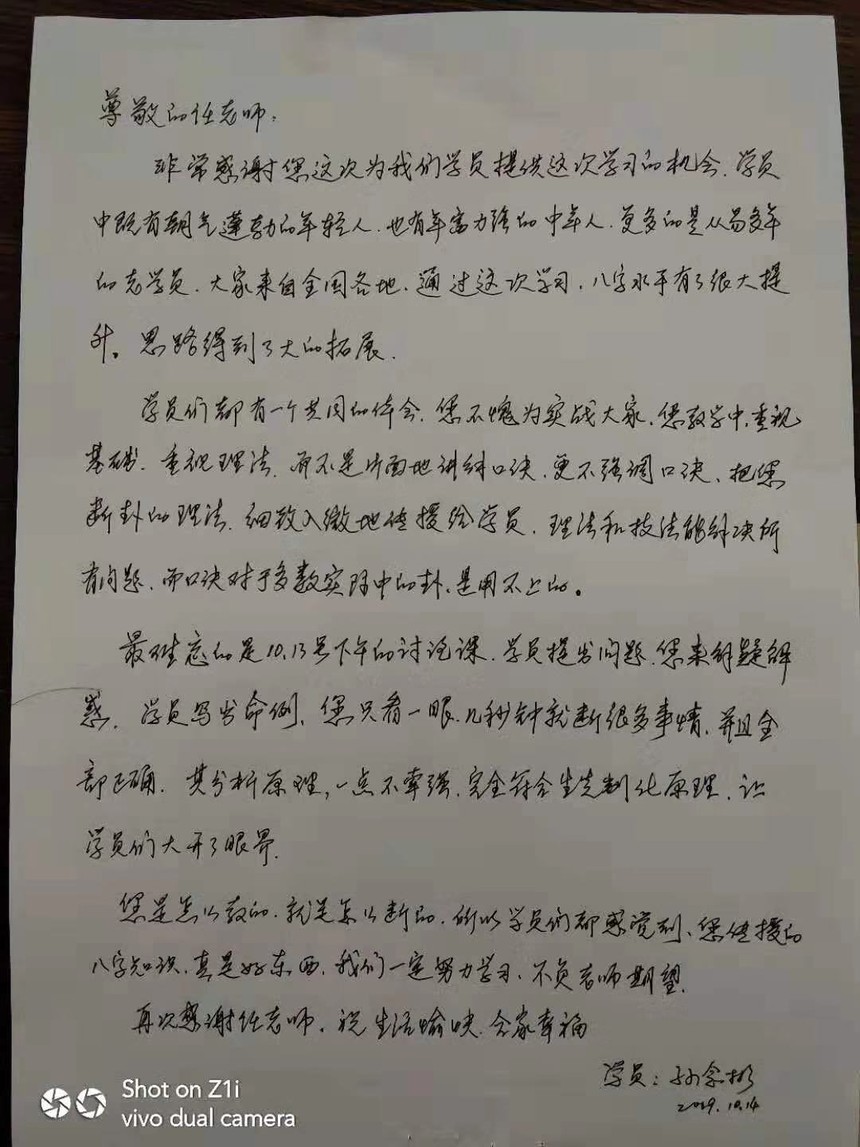 尊敬的任老师:
非常感谢您这次为我们学员提供这次学习的机会.学员
中既有朝气蓬勃的年轻人.也有年富力强的中年人.更多的是从易多年
的老学员.大家来自全国各地.通过这次学习.八字水平有了很大提
升。思路得到了大的拓展.
学员们都有一个共同的体会.您不愧为实战大家.您教学中,重视
基础.重视理法.而不是片面地讲解口诀.更不强调口诀、把您
断卦的理法.细致入微地传授给学员.理法和技法能解决所
有问题.而口诀对于多数实际中的卦.是用不上的。
最难忘的是10.13号下午的讨论课.学员提出问题.您来解疑解
惑.学员写出命例、您只看一眼.几秒钟就断很多事情.并且全
部正确.其分析原理,一点不牵强.完全符合生克制化原理.让
学员们大开了眼界.
您是怎么教的.就是怎么断的.所以学员们都感觉到、您传授的
八字知识.真是好东西.我们一定努力学习、不负老师期望.
再次感谢任老师.祝生活愉快.合家幸福
学员:孙念彬
2019.10.14
Shot on Z1i
vivo dual camera